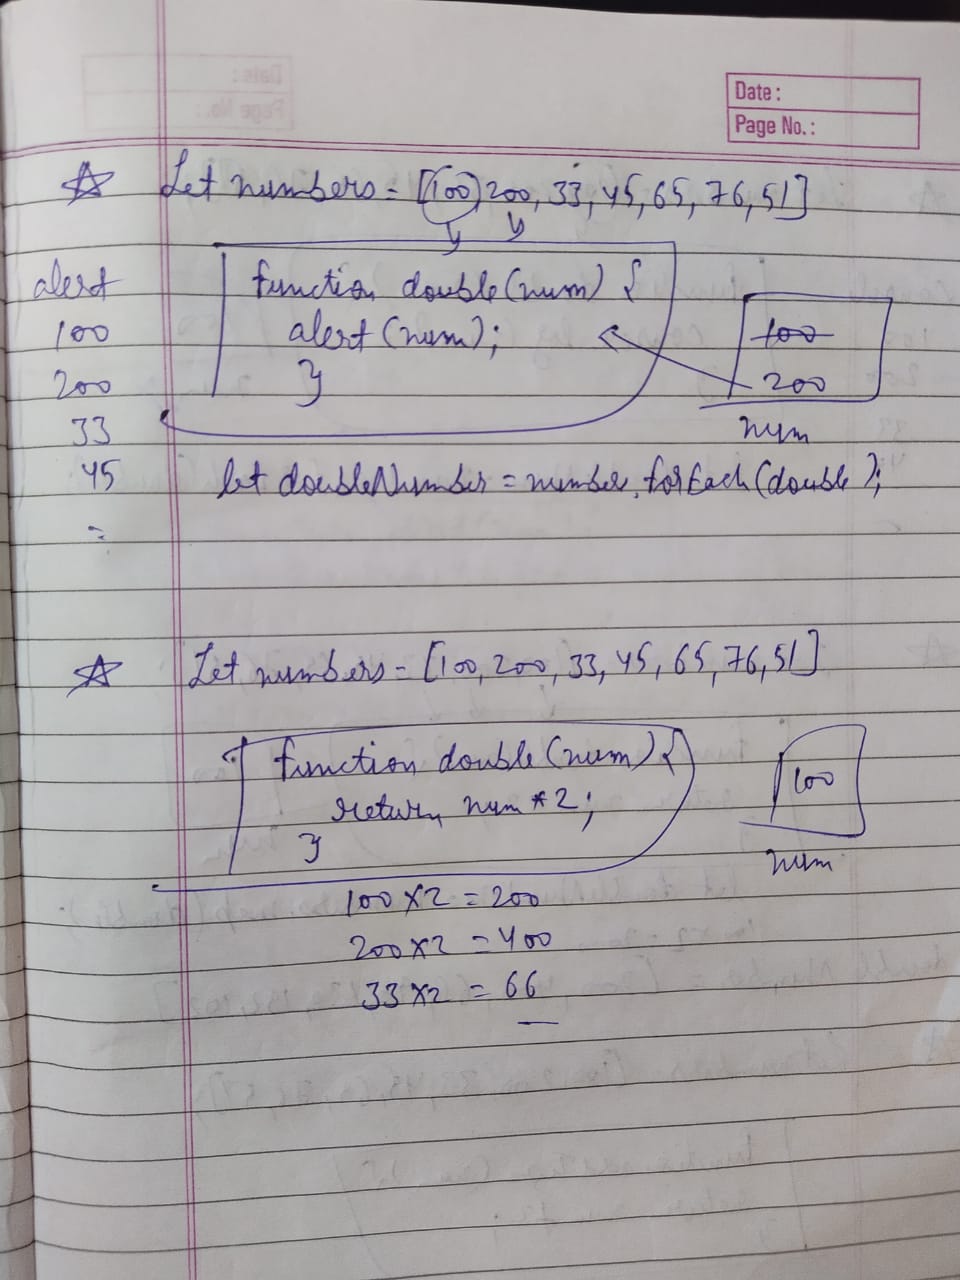 Date:
Page No.:
Let numbers = [100, 200, 33, 45, 65, 76, 51]
alert
100
200
33
45
function double(num) {
alert(num);
}
100
200
num
let doubleNumber = number.forEach(double);
Let numbers = [100, 200, 33, 45, 65, 76, 51]
function double(num) {
return num *2;
}
100
num
100 × 2 = 200
200 × 2 = 400
33 × 2 = 66